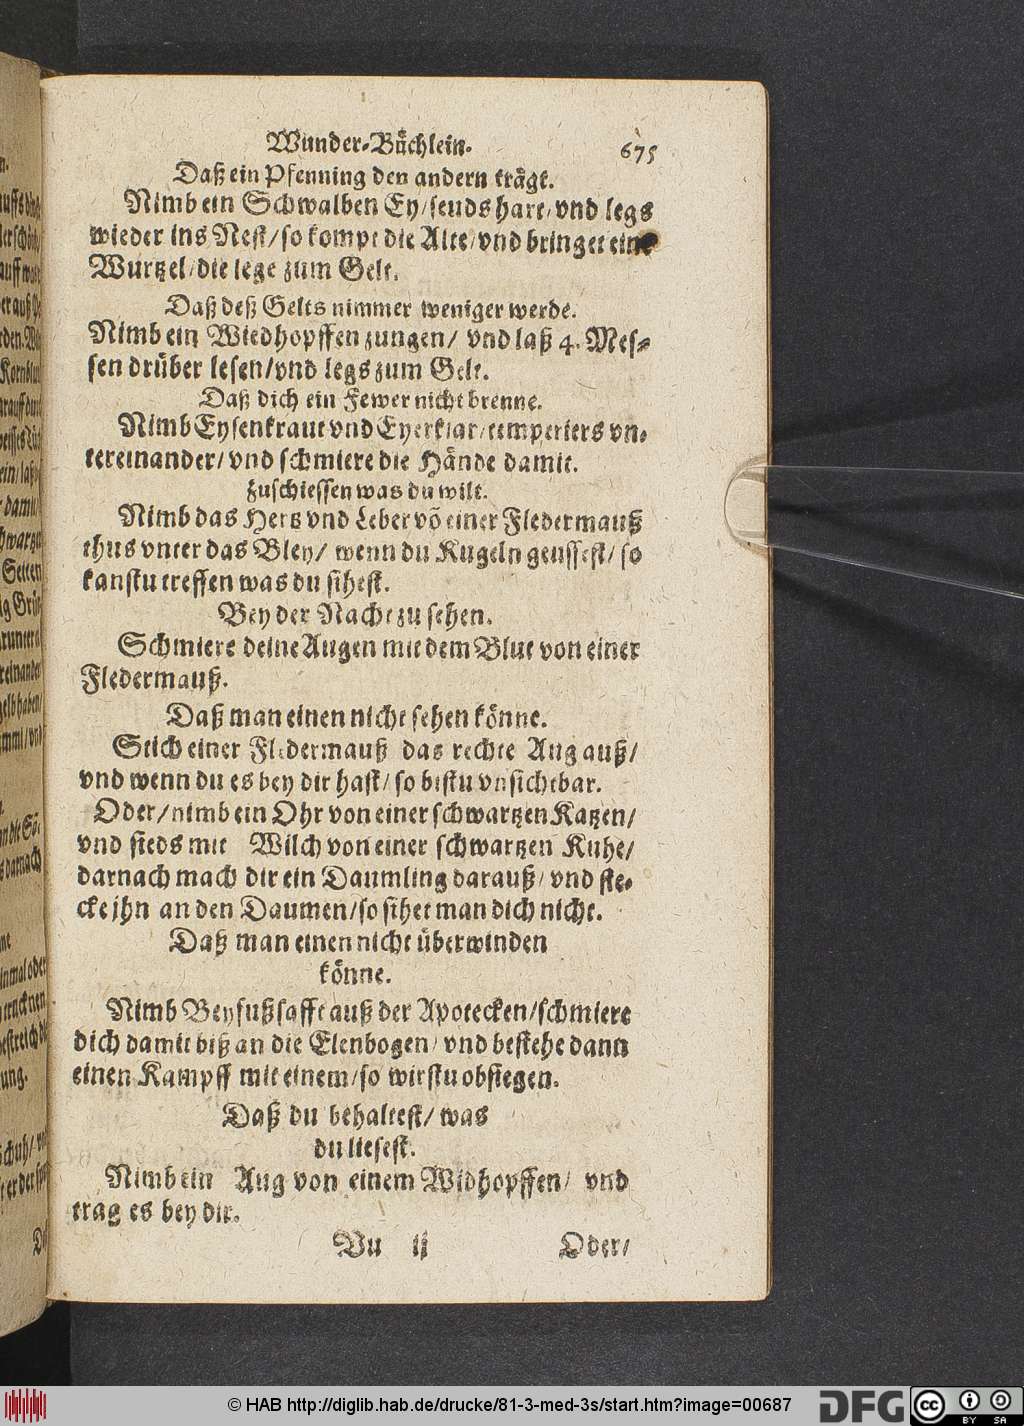 Wunder-Bůchlein. 675
Daß ein Pfenning den andern trågt.
Nimb ein Schwalben Ey/seuds hart/vnd legs
wieder ins Nest/so kompt die Alte/vnd bringet eine
Wurtzel/die lege zum Gelt.
Daß deß Gelts nimmer weniger werde.
Nimb ein Wiedhopffen zungen/ vnd laß 4. Mes-
sen drüber lesen/vnd legs zum Gelt.
Daß dich ein Fewer nicht brenne.
Nimb Eysenkraut vnd Eyerklar/temperiers vn-
tereinander/vnd schmiere die Hände damit.
Zuschiessen was du wilt.
Nimb das Hertz vnd Leber võ einer Fledermauß
thus vnter das Bley/ wenn du Kugeln geussest/so
kanstu treffen was du sihest.
Bey der Nacht zu sehen.
Schmiere deine Augen mit dem Blut von einer
Fledermauß.
Daß man einen nicht sehen könne.
Stich einer Fledermauß das rechte Aug auß/
vnd wenn du es bey dir hast/so bistu vnsichtbar.
Oder/nimb ein Ohr von einer schwartzen Katzen/
vnd sieds mit Milch von einer schwartzen Kuhe/
darnach mach dir ein Daumling darauß/vnd ste-
cke jhn an den Daumen/so sihet man dich nicht.
Daß man einen nicht überwinden
könne.
Nimb Beyfußsafft auß der Apotecken/schmiere
dich damit biß an die Elenbogen/vnd bestehe dann
einen Kampff mit einem/so wirstu obsiegen.
Daß du behaltest/was
du liesest.
Nimb ein Aug von einem Widhopffen/ vnd
trag es bey dir.
Vu ij Oder/
© HAB http://diglib.hab.de/drucke/81-3-med-3s/start.htm?image=00687
DFG
cc BY SA